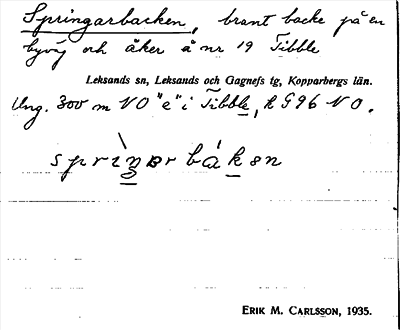 Springarbacken, brant backe på en
byväg och åker å nr 19 Tibble
Leksands sn, Leksands och Gagnefs tg, Kopparbergs län.
Ung. 300 m NO "e" i Tibble, k 596 NO.
Erik M. Carlsson, 1935.